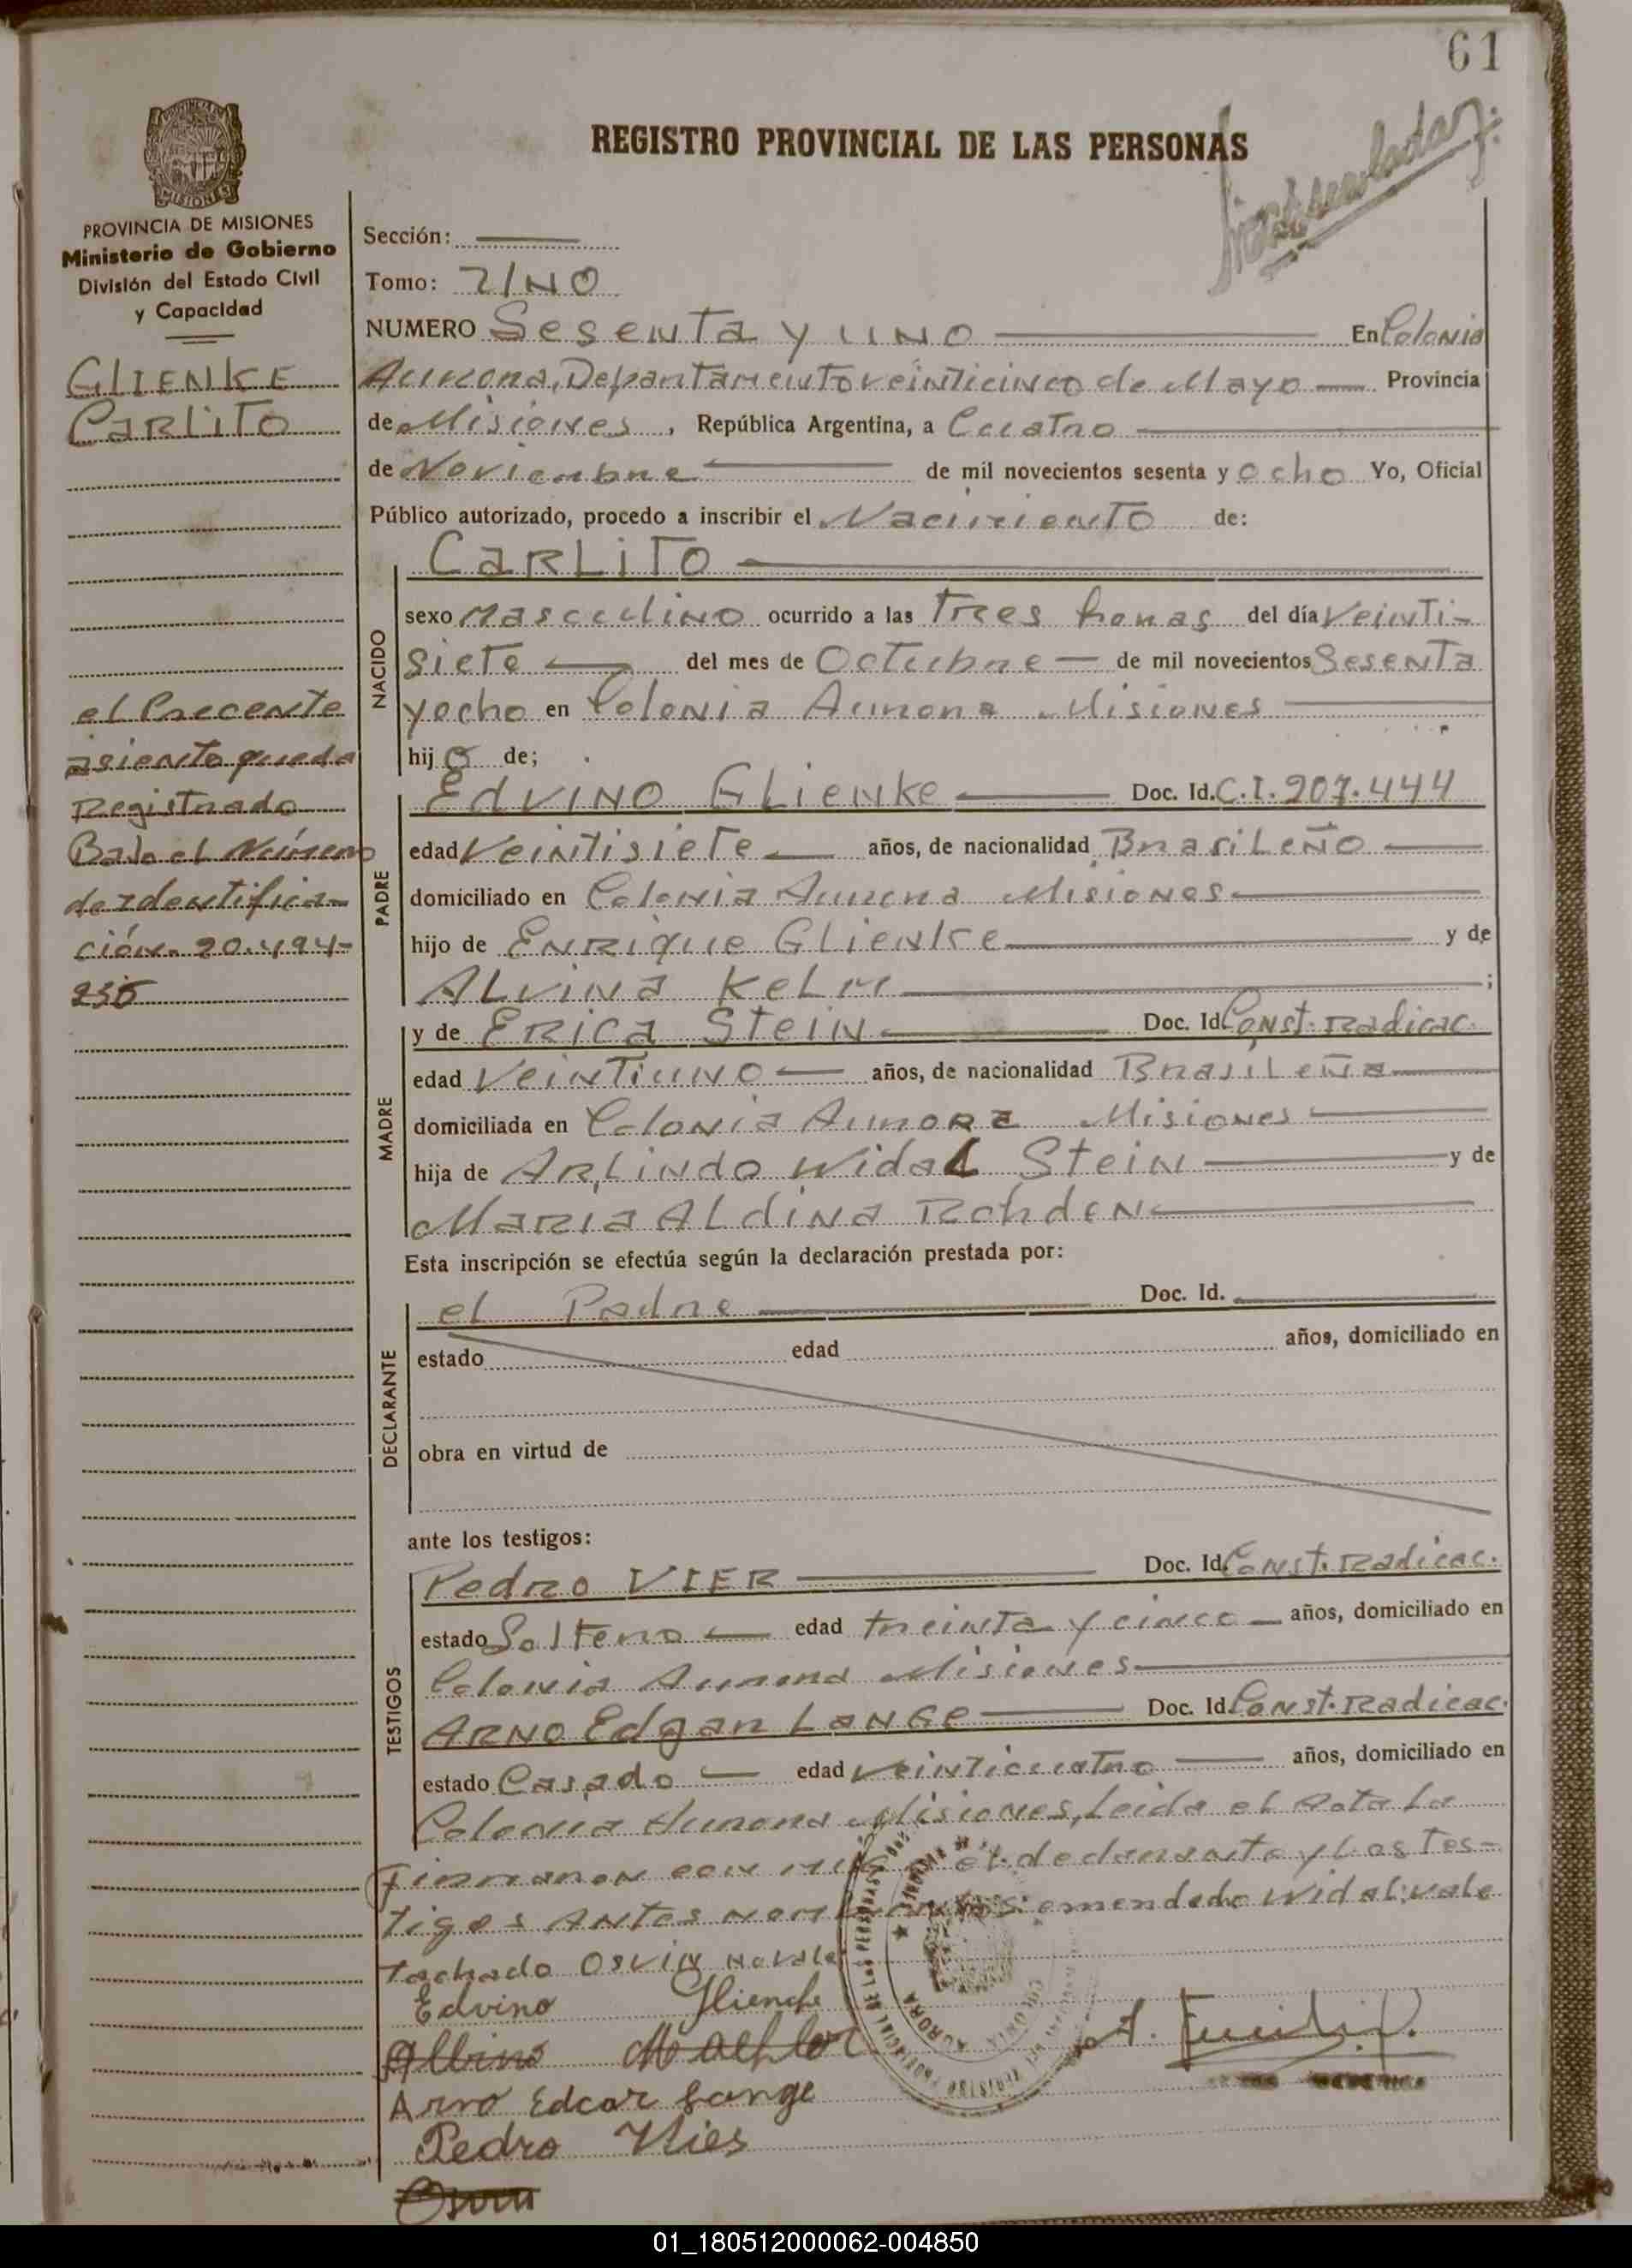 61
REGISTRO PROVINCIAL DE LAS PERSONAS
PROVINCIA DE MISIONES
Ministerio de Gobierno
División del Estado Civil
y Capacidad
GLIENKE
CARLITO
el Precente
asiento queda
Registrado
Bajo el Número
de Identifica-
ción. 20.494-
Sección:
Tomo: UNO
NUMERO Sesenta y uno En Colonia
Aurora, Departamento veinticinco de Mayo Provincia
de Misiones, República Argentina, a Cuatro
de Noviembre de mil novecientos sesenta y ocho Yo, Oficial
Público autorizado, procedo a inscribir el Nacimiento de:
NACIDO
CARLITO
sexo masculino ocurrido a las Tres horas del día Veinti-
siete del mes de Octubre de mil novecientos Sesenta
y ocho en Colonia Aurora Misiones
hijo de;
PADRE
Edvino Glienke Doc. Id. C.I. 207.444
edad Veintisiete años, de nacionalidad Brasileño
domiciliado en Colonia Aurora Misiones
hijo de Enrique Glienke y de
ALvina KeLm ;
MADRE
y de Erica Stein Doc. Id. Const. Radicac.
edad Veintiuno años, de nacionalidad Brasileña
domiciliada en Colonia Aurora Misiones
hija de Arlindo Widal Stein y de
Maria ALdina Rohden
Esta inscripción se efectúa según la declaración prestada por:
DECLARANTE
el Padre Doc. Id.
estado edad años, domiciliado en
obra en virtud de
ante los testigos:
TESTIGOS
Pedro VIER Doc. Id. Const. Radicac.
estado Soltero edad treinta y cinco años, domiciliado en
Colonia Aurora Misiones
ARNO Edgar LANGE Doc. Id. Const. Radicac.
estado Casado edad veinticuatro años, domiciliado en
Colonia Aurora Misiones, Leida el Acta La
Firmaron con migo el declarante y Los Tes-
tigos Antes nombrados: emendado Widal: vale
Tachado OSVIN No vale
Edvino Glienche
Albino
Arno Edcar Lange
Pedro
Osvin
01_180512000062-004850